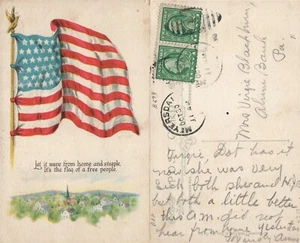 Let it wave from home and steeple,
It's the flag of a free people.
MEYERSDALE
Mrs Virgie Blackburn,
Alum Bank
Pa.
Virgie, Dot has it
now she was very
sick both she and
but both a little better
this A.M. did not
hear from